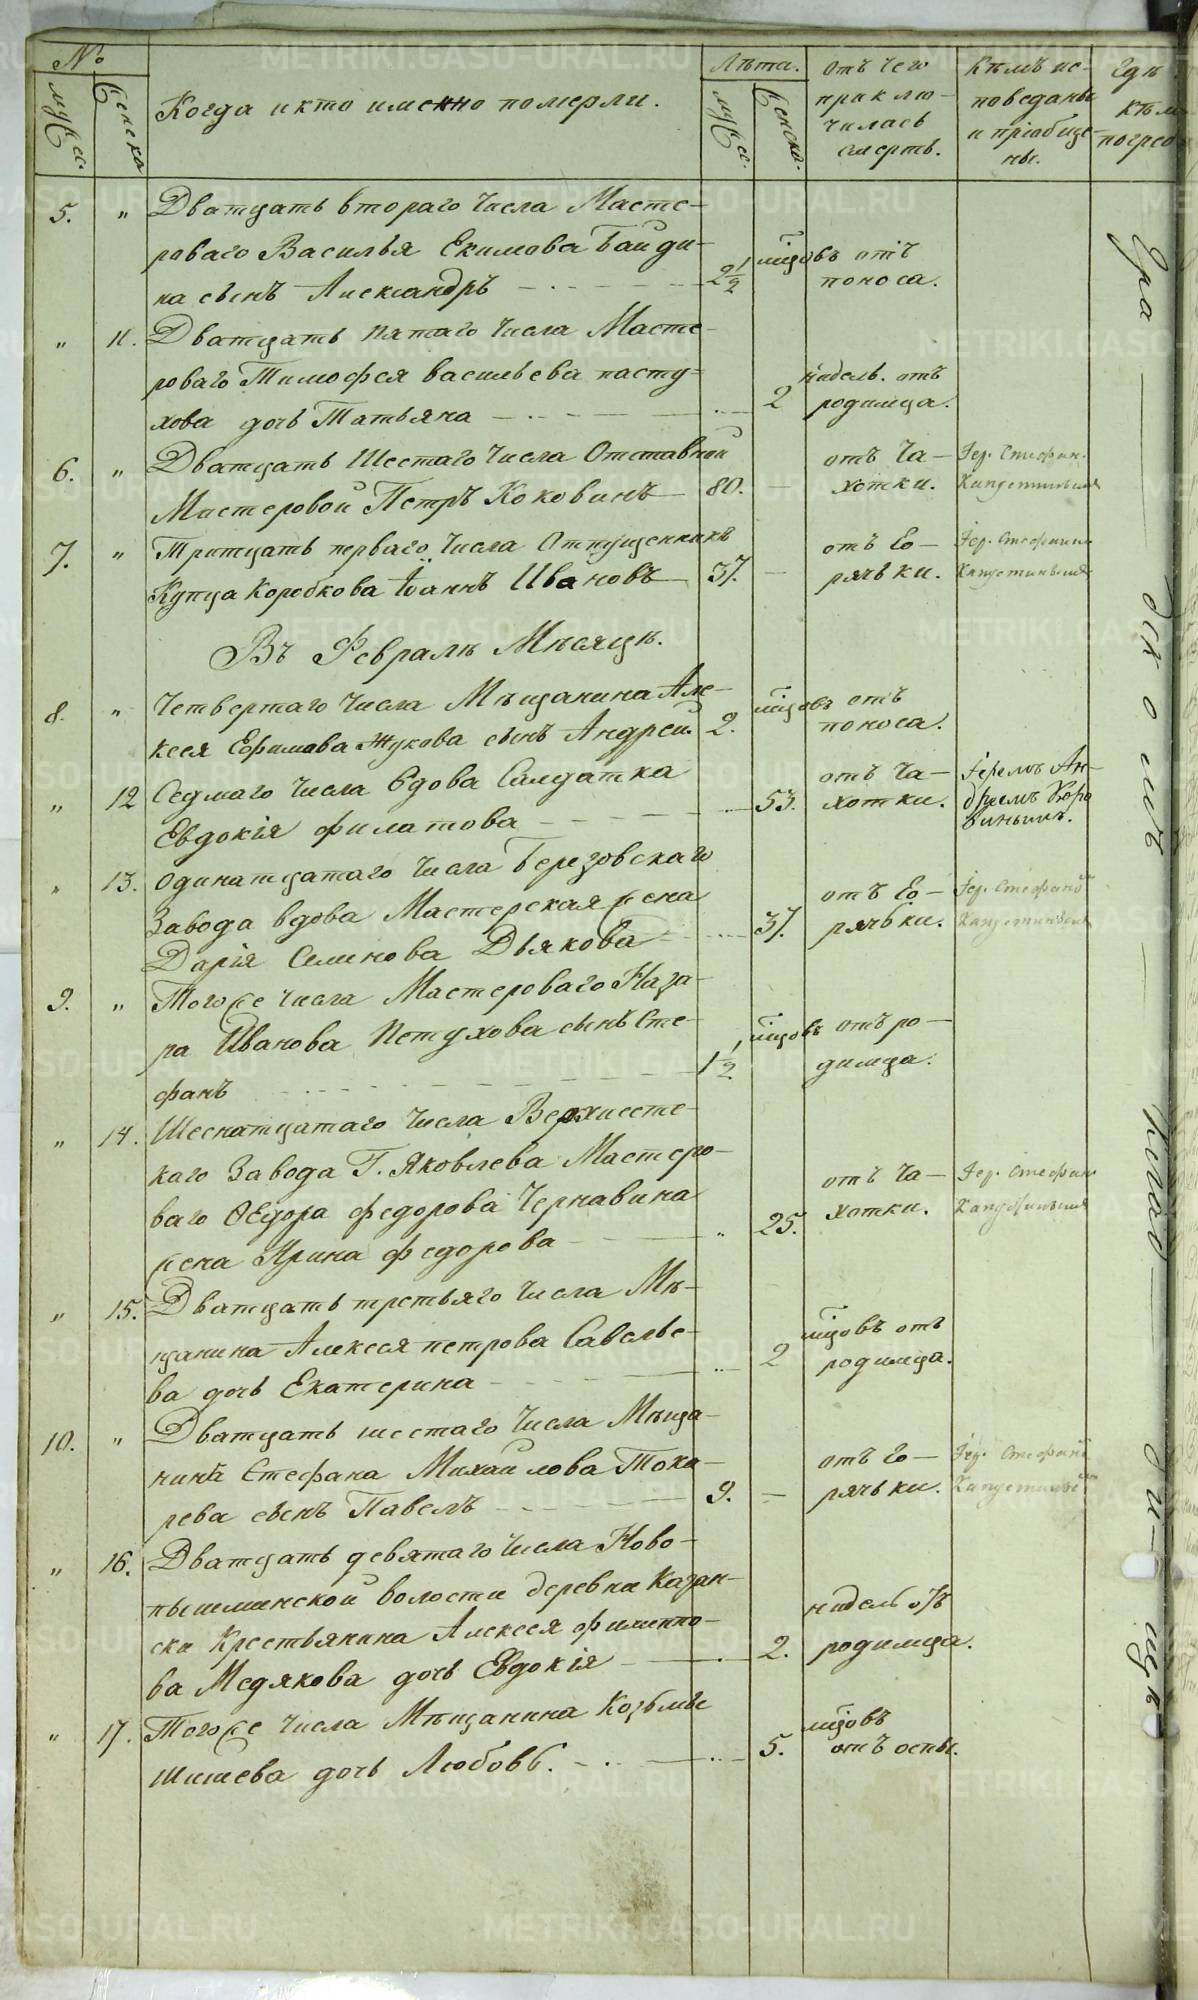 №
мужес.
женска
Когда и кто именно померли.
Лѣта.
мужес.
женска.
отъ чего приклю-
чилась
смерть.
Кѣмъ ис-
поведаны
и пріобще-
ны.
Гдѣ
кѣм
погреб
5. " Дватцать втораго числа Масте-
роваго Василья Екимова Байди-
на сынъ Александръ 2 1/2 мцовъ отъ
поноса.
" 11. Дватцать пятаго числа Масте-
роваго Тимофея васильева пасту-
хова дочь Татьяна 2 нидель. отъ
родимца.
6. " Дватцать Шестаго числа Отставной
Мастеровой Петръ Коковинъ 80. — отъ Ча-
хотки. Іер. Стефан.
Капустинымъ
7. " Тритцать перваго числа Отпущенникъ
Купца Коробкова Іоаннъ Ивановъ 37. — отъ Го-
рячьки. Іер. Стефаном
Капустинымъ
Въ Февралѣ Мѣсяцѣ.
8. " Четвертаго числа Мѣщанина Але-
ксея Ефимова Жукова сынъ Андрей. 2. мцовъ отъ
поноса.
" 12 Седмаго числа вдова Салдатка
Евдокія филатова 53. отъ Ча-
хотки. Іереемъ Ан-
дреемъ Коро
виныымъ.
" 13. Одинатцатаго числа Березовскаго
Завода вдова Мастерская жена
Дарія Семенова Дьякова 37. отъ Го-
рячьки. Іер. Стефаном
Капустинымъ
9. " Тогоже числа Мастероваго Наза-
ра Иванова Петухова сынъ Сте-
фанъ 1 1/2 мцовъ отъ ро-
димца.
" 14. Шеснатцатаго числа Верхисетс-
каго Завода Г. Яковлева Мастеро-
ваго Ѳедора федорова Чернавина
жена Ирина федорова 25. отъ Ча-
хотки. Іер. Стефан
Капустинымъ
" 15. Дватцать третьяго числа Мѣ-
щанина Алексея петрова Савелье-
ва дочь Екатерина 2 мцовъ отъ
родимца.
10. " Дватцать шестаго числа Мѣща-
нина Стефана Михайлова Тока-
рева сынъ Павелъ 9. — отъ Го-
рячьки. Іер. Стефаном
Капустинымъ
" 16. Дватцать девятаго числа Ново-
пышминской волости деревни Казан-
ски Крестьянина Алексея филиппо-
ва Медякова дочь Евдокія 2. нидель отъ
родимца.
" 17. Тогоже числа Мѣщанина Козьмы
Шишева дочь Любовь. 5. мцовъ
отъ оспы.
METRIKI.GASO-URAL.RU